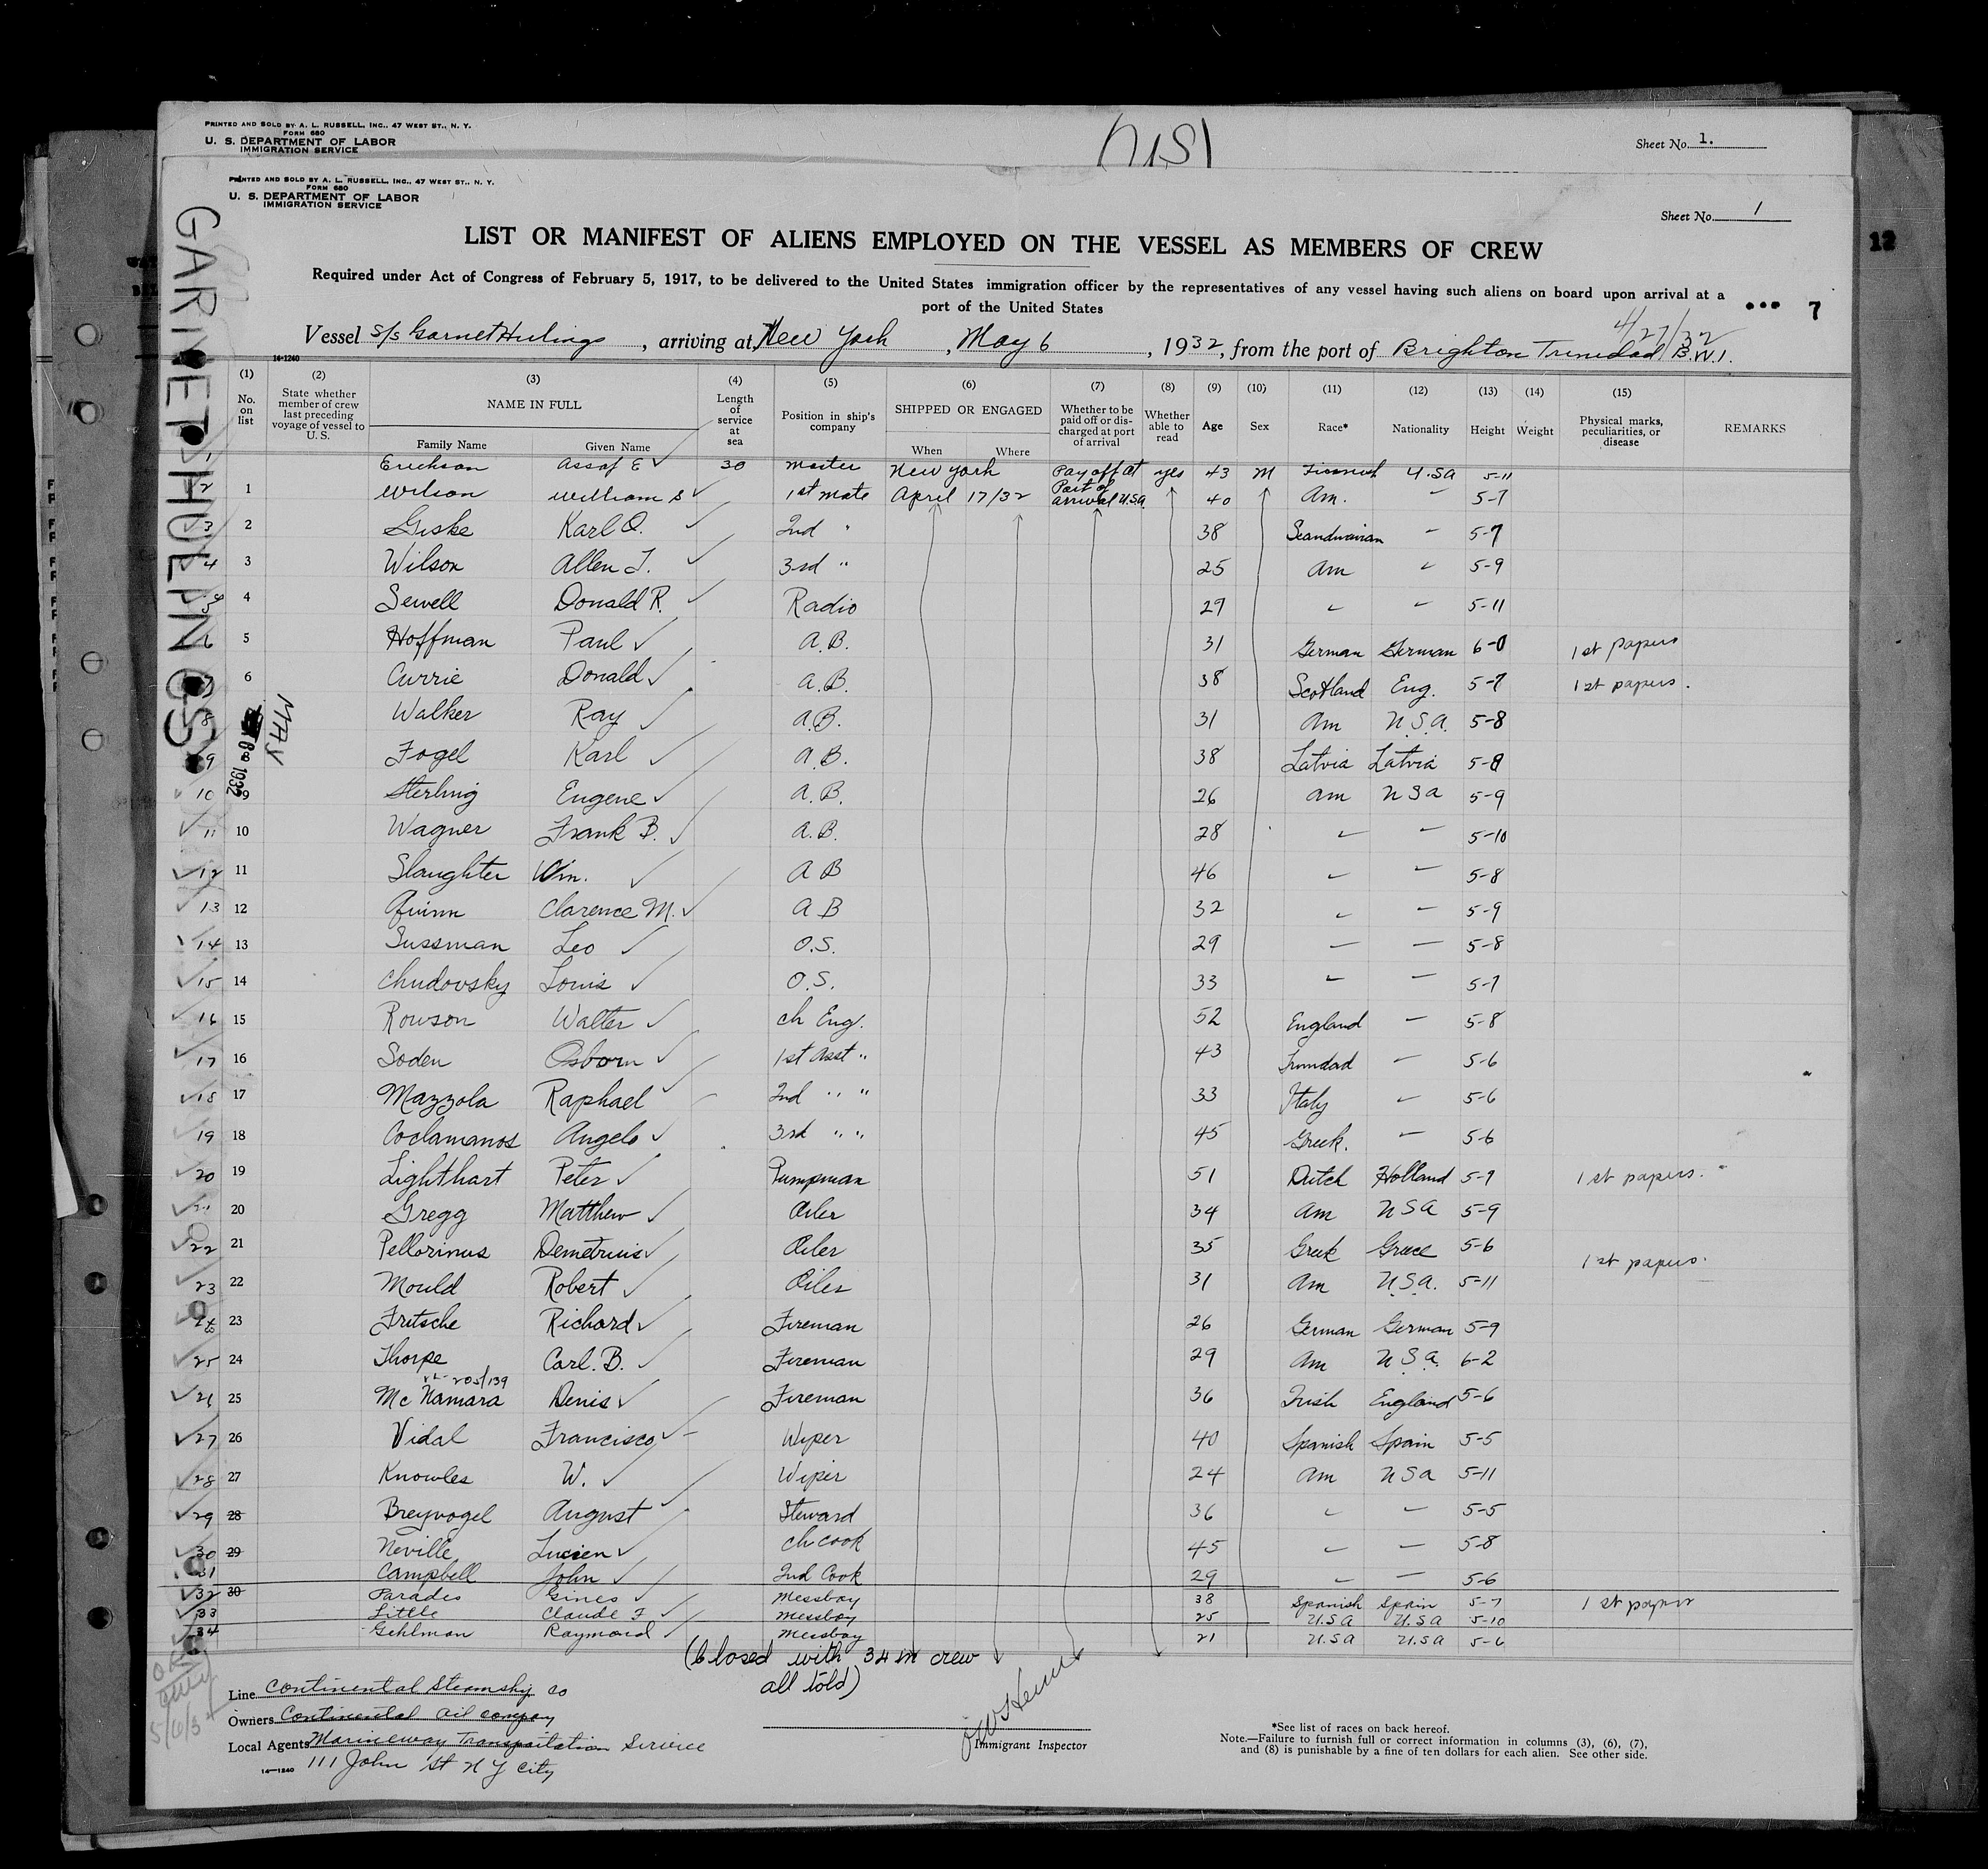 PRINTED AND SOLD BY A. L. RUSSELL, INC., 47 WEST ST., N. Y.
FORM 680
U. S. DEPARTMENT OF LABOR
IMMIGRATION SERVICE
Sheet No. 1.
PRINTED AND SOLD BY A. L. RUSSELL, INC., 47 WEST ST., N. Y.
FORM 680
U. S. DEPARTMENT OF LABOR
IMMIGRATION SERVICE
Sheet No. 1
GARNET HULINGS
LIST OR MANIFEST OF ALIENS EMPLOYED ON THE VESSEL AS MEMBERS OF CREW
12
Required under Act of Congress of February 5, 1917, to be delivered to the United States immigration officer by the representatives of any vessel having such aliens on board upon arrival at a
port of the United States
7
4/27/32
Vessel S/s Garnet Hulings, arriving at New York, May 6, 1932, from the port of Brighton Trinidad B.W.I.
14-1240
(1) No. on list (2) State whether member of crew last preceding voyage of vessel to U. S. (3) NAME IN FULL Family Name Given Name (4) Length of service at sea (5) Position in ship's company (6) SHIPPED OR ENGAGED When Where (7) Whether to be paid off or discharged at port of arrival (8) Whether able to read (9) Age (10) Sex (11) Race* (12) Nationality (13) Height (14) Weight (15) Physical marks, peculiarities, or disease REMARKS
Erickson Assaf E 30 Master New York Pay off at yes 43 M Finnish U.S.A 5-11
2 1 Wilson William S 1st Mate April 17/32 Port of arrival U.S.A. 40 Am. " 5-7
3 2 Giske Karl O. 2nd " 38 Scandinavian " 5-7
4 3 Wilson Allen J. 3rd " 25 Am " 5-9
5 4 Sewell Donald R. Radio 29 " " 5-11
6 5 Hoffman Paul A.B. 31 German German 6-0 1st papers
6 Currie Donald A.B. 38 Scotland Eng. 5-7 1st papers.
8 Walker Ray A.B. 31 Am U.S.A. 5-8
9 Fogel Karl A.B. 38 Latvia Latvia 5-8
MAY 1932
10 9 Sterling Eugene A.B. 26 Am USA 5-9
11 10 Wagner Frank B. A.B. 28 " " 5-10
12 11 Slaughter Wm. A B 46 " " 5-8
13 12 Quinn Clarence M. A B 32 " " 5-9
14 13 Sussman Leo O.S. 29 " " 5-8
15 14 Chudovsky Louis O.S. 33 " " 5-7
16 15 Rowson Walter Ch Eng. 52 England " 5-8
17 16 Soden Osborn 1st Asst " 43 Trinidad " 5-6
18 17 Mazzola Raphael 2nd " " 33 Italy " 5-6
19 18 Coclamanos Angelo 3rd " " 45 Greek. " 5-6
20 19 Lighthart Peter Pumpman 51 Dutch Holland 5-7 1st papers.
21 20 Gregg Matthew Oiler 34 Am USA 5-9
22 21 Pellorinus Demetruis Oiler 35 Greek Greece 5-6 1st papers.
23 22 Mould Robert Oiler 31 Am U.S.A. 5-11
24 23 Fritsche Richard Fireman 26 German German 5-9
25 24 Thorpe Carl. B. Fireman 29 Am U.S.A. 6-2
205/139
26 25 Mc Namara Denis Fireman 36 Irish England 5-6
27 26 Vidal Francisco Wiper 40 Spanish Spain 5-5
28 27 Knowles W. Wiper 24 Am USA 5-11
29 28 Breyvogel August Steward 36 " " 5-5
30 29 Neville Lucien Ch cook 45 " " 5-8
31 Campbell John 2nd Cook 29 " " 5-6
32 30 Parades Gines Messboy 38 Spanish Spain 5-7 1st paper
33 Little Claude F Messboy 25 U.S.A U.S.A 5-10
34 Gehlman Raymond Messboy 21 U.S.A U.S.A 5-6
(Closed with 34 in crew
all told)
Line Continental Steamship Co
Owners Continental Oil Company
Local Agents Marineway Transportation Service
111 John St N Y City
14-1240
Immigrant Inspector
*See list of races on back hereof.
Note.—Failure to furnish full or correct information in columns (3), (6), (7),
and (8) is punishable by a fine of ten dollars for each alien. See other side.